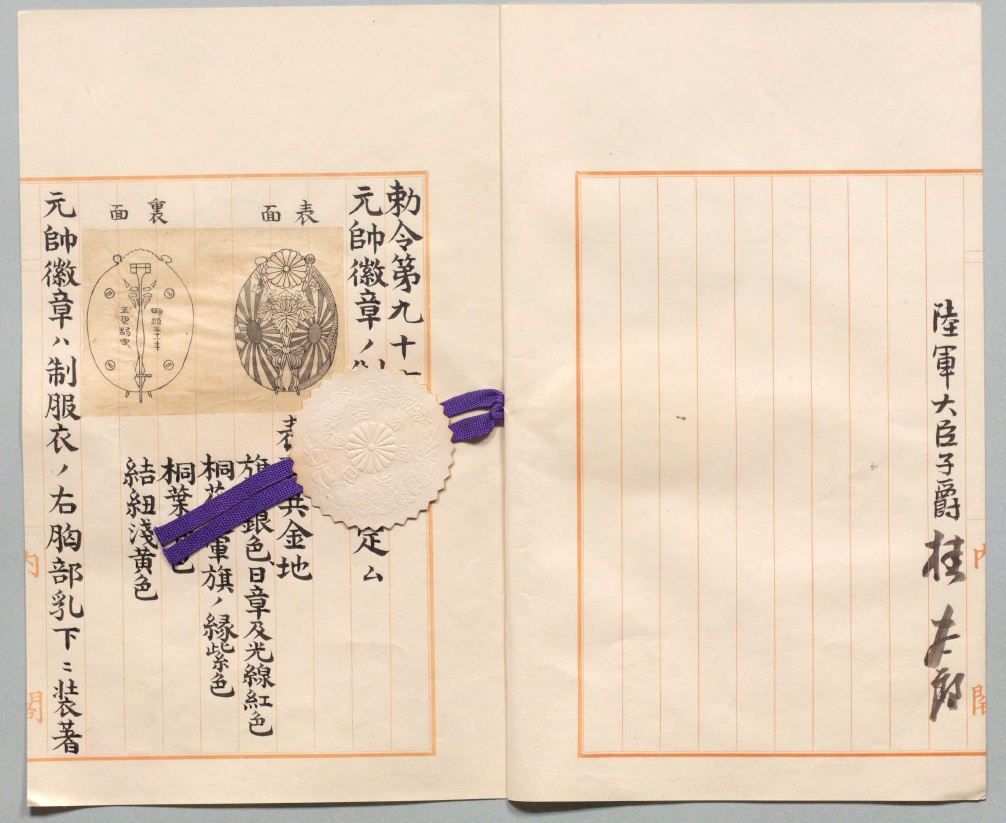 陸軍大臣子爵 桂太郎
内閣
勅令第九十
元帥徽章ノ 定ム
表面
裏面
明治三十一年
表 金地
旗 銀色、日章及光線紅色
桐花 軍旗ノ縁紫色
桐葉 色
結紐淺黄色
元帥徽章ハ制服衣ノ右胸部乳下ニ装著
内閣